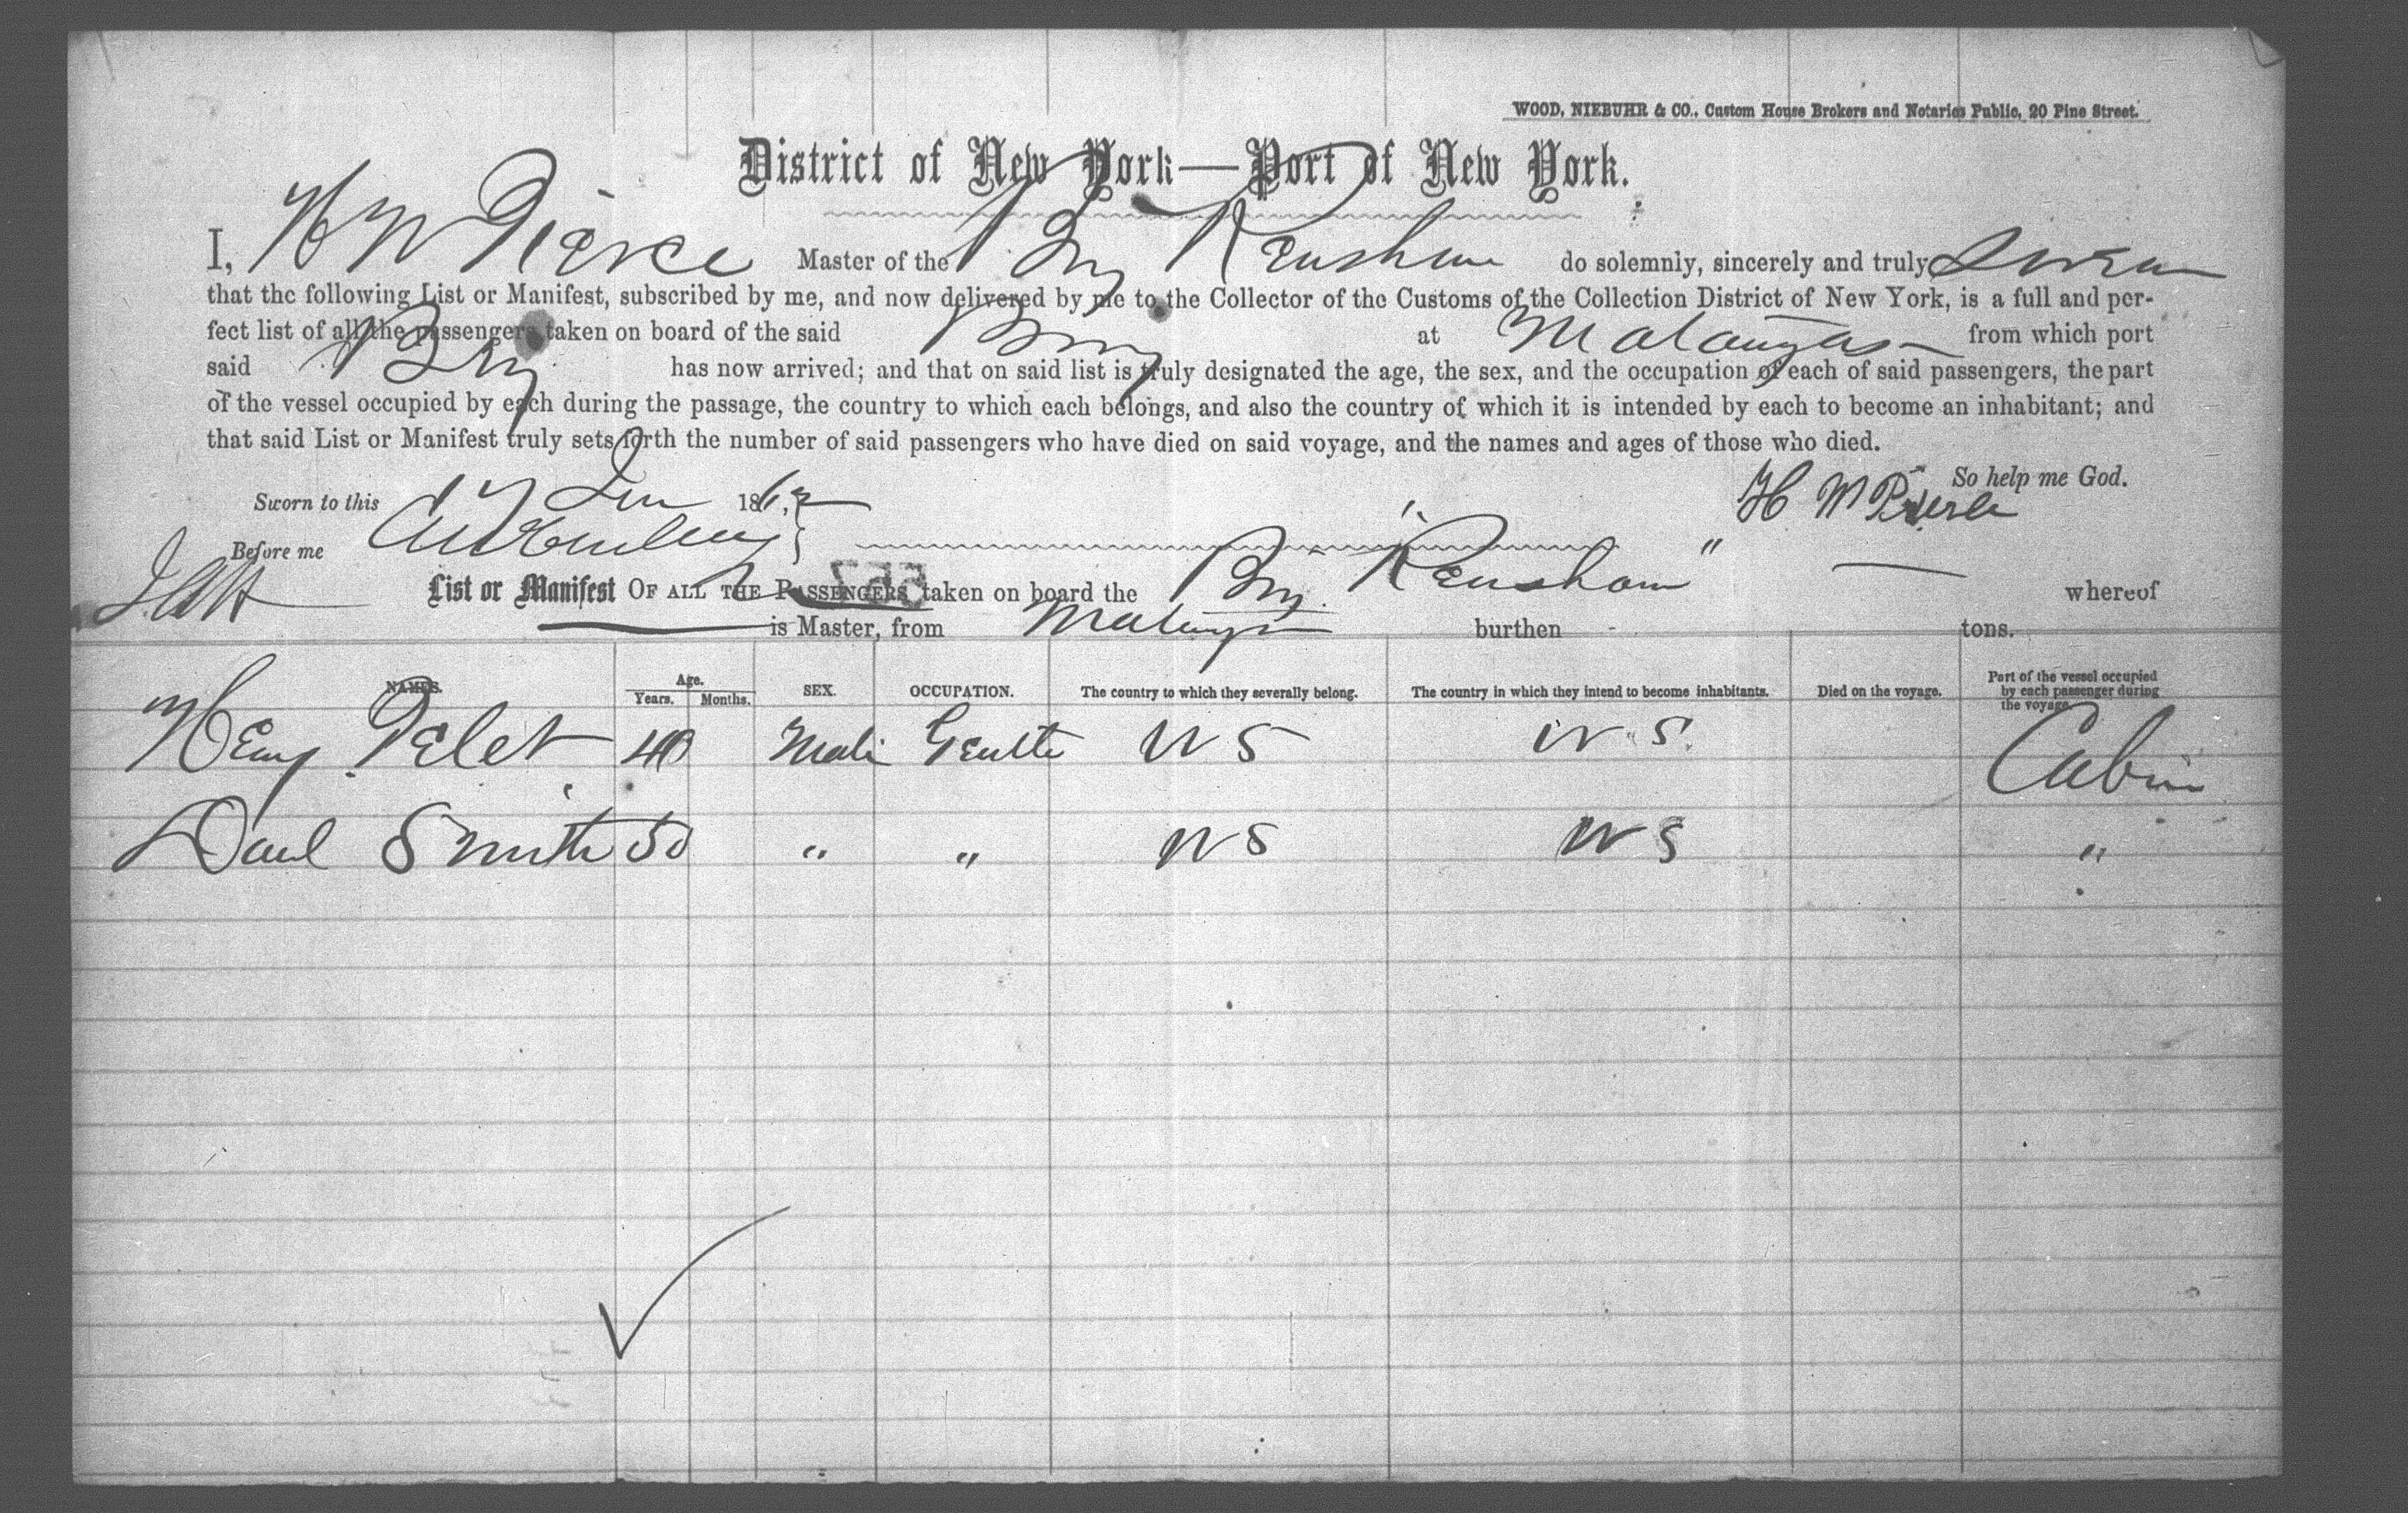 WOOD, NIEBUHR & CO., Custom House Brokers and Notaries Public, 20 Pine Street.
District of New York—Port of New York.
I, H W Pierce Master of the Brig Renshaw do solemnly, sincerely and truly swear
that the following List or Manifest, subscribed by me, and now delivered by me to the Collector of the Customs of the Collection District of New York, is a full and per-
fect list of all the passengers taken on board of the said Brig at Matanzas from which port
said Brig has now arrived; and that on said list is truly designated the age, the sex, and the occupation of each of said passengers, the part
of the vessel occupied by each during the passage, the country to which each belongs, and also the country of which it is intended by each to become an inhabitant; and
that said List or Manifest truly sets forth the number of said passengers who have died on said voyage, and the names and ages of those who died.
So help me God.
Sworn to this 17 186 H W Pierce
Before me
557
List or Manifest OF ALL THE PASSENGERS taken on board the Brig Renshaw " whereof
is Master, from Matanzas burthen tons.
NAMES. Age. Years. Months. SEX. OCCUPATION. The country to which they severally belong. The country in which they intend to become inhabitants. Died on the voyage. Part of the vessel occupied by each passenger during the voyage.
Henry Pelet 40 Male U S U S Cabin
Smith 50 " " U S U S "